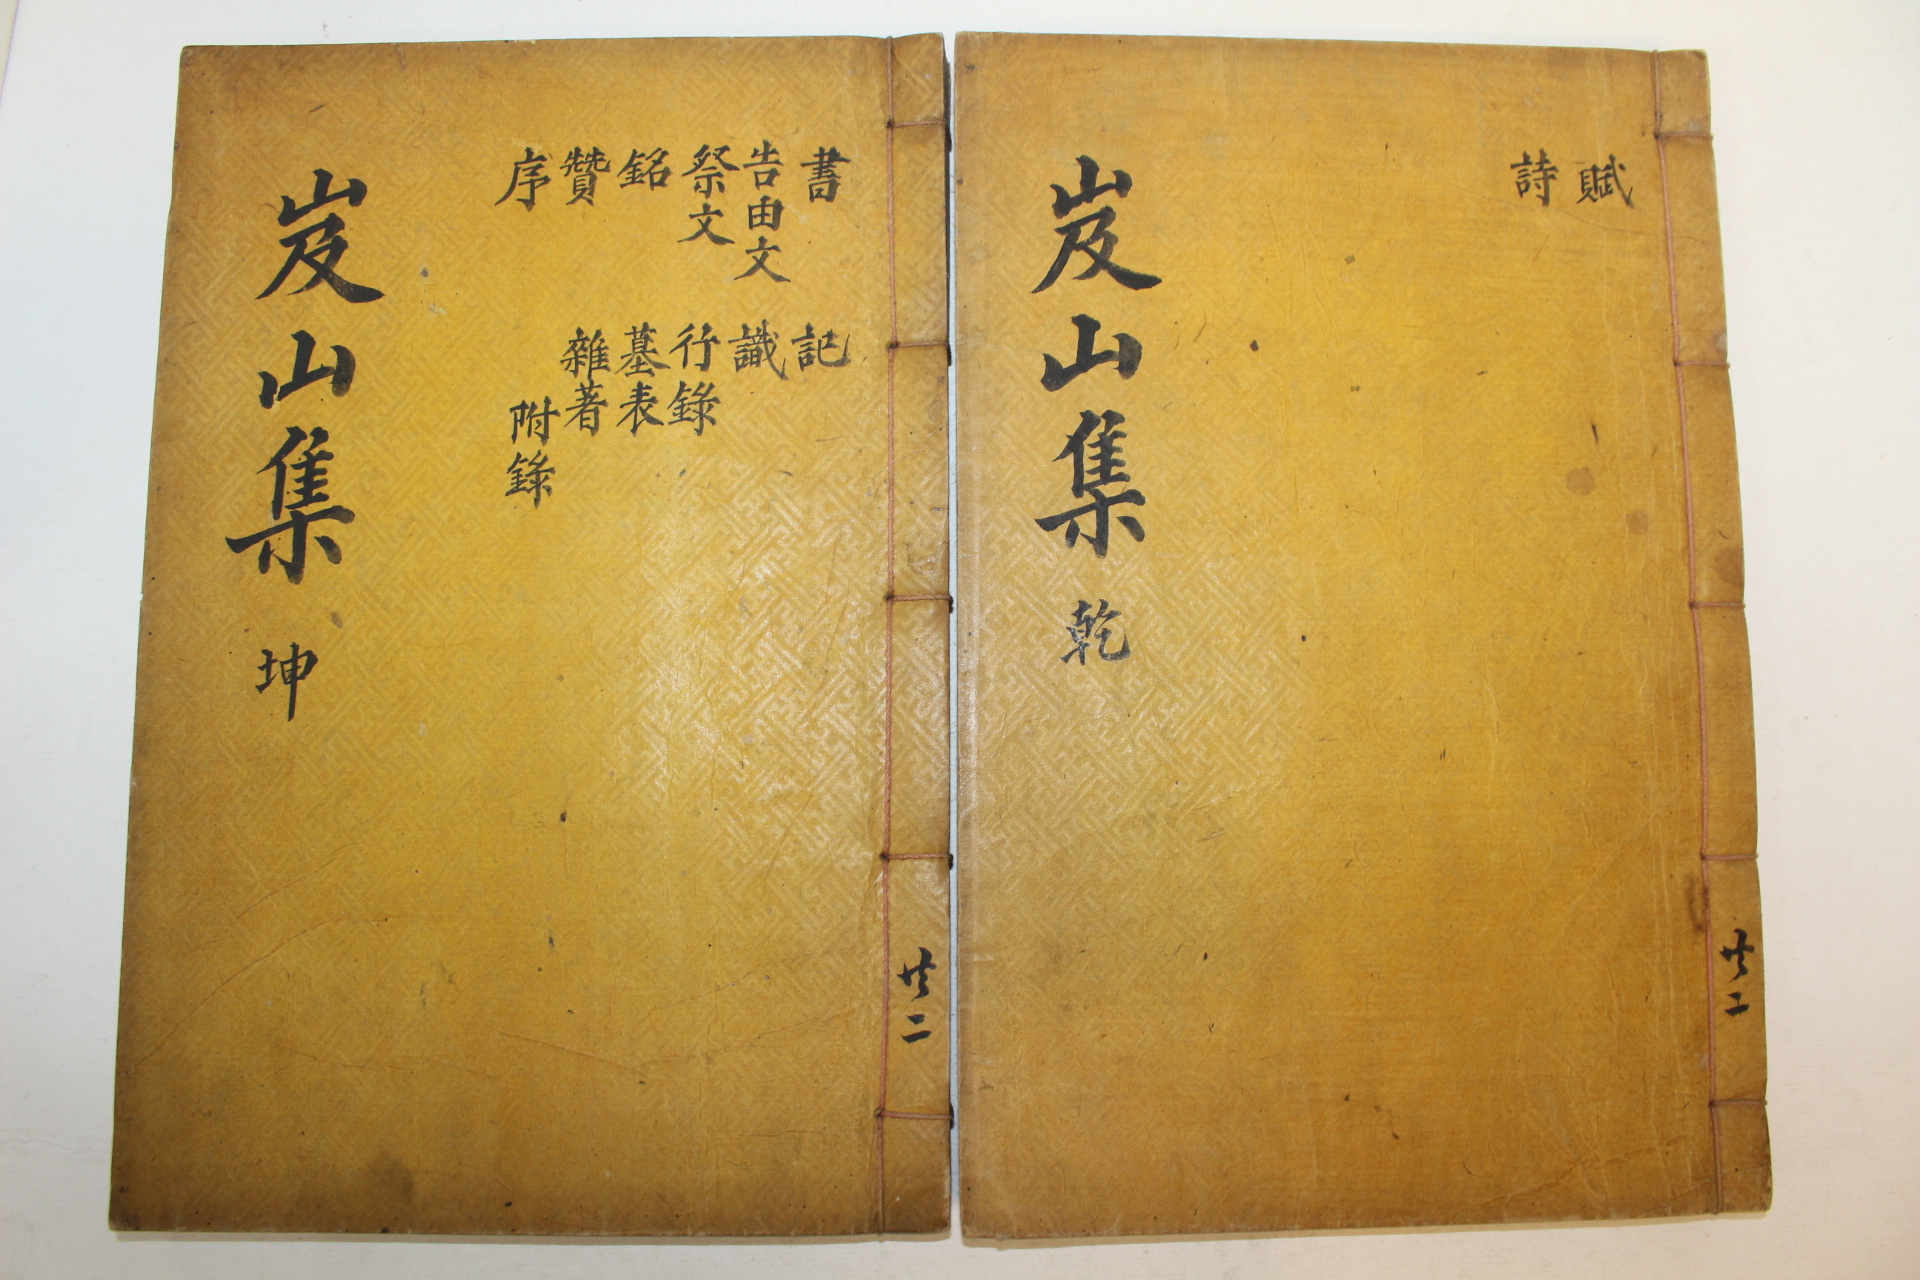 賦
詩
岌山集 乾
共二
書 記
告由文 識
祭文 行錄
銘 墓表
贊 雜著
序 附錄
岌山集 坤
共二